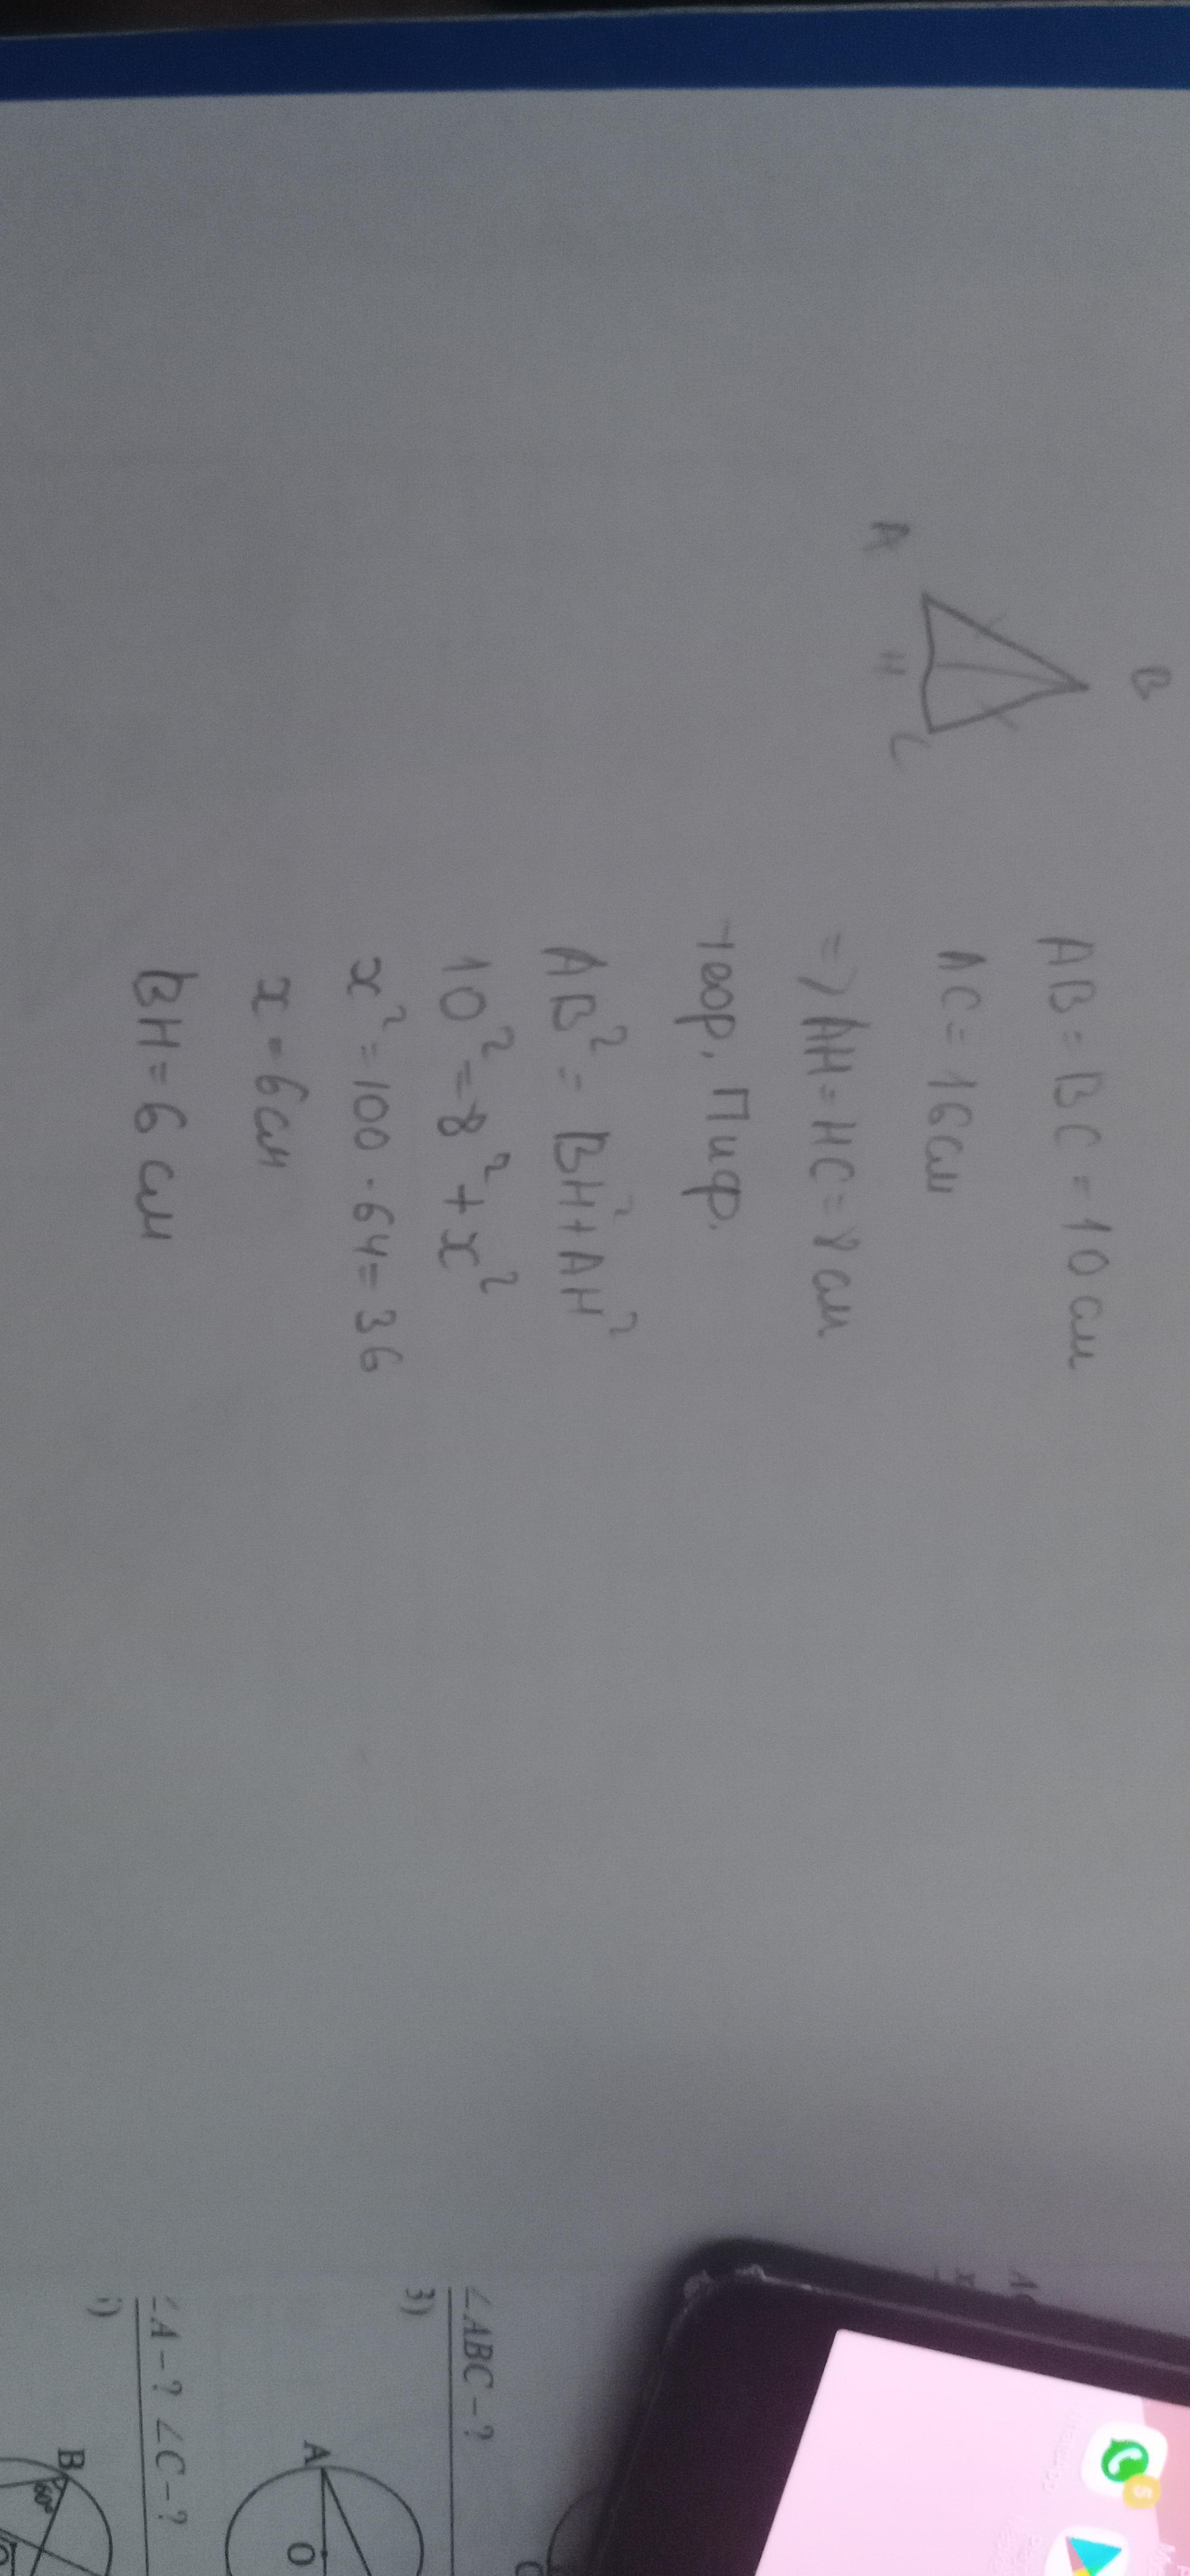 B
A
H
C
AB = BC = 10 см
AC = 16 см
=> AH = HC = 8 см
теор. Пиф.
AB² = BH² + AH²
10² = 8² + x²
x² = 100 · 64 = 36
x = 6 см
BH = 6 см
∠ABC – ?
3)
A
O
∠A – ? ∠C – ?
B
60°